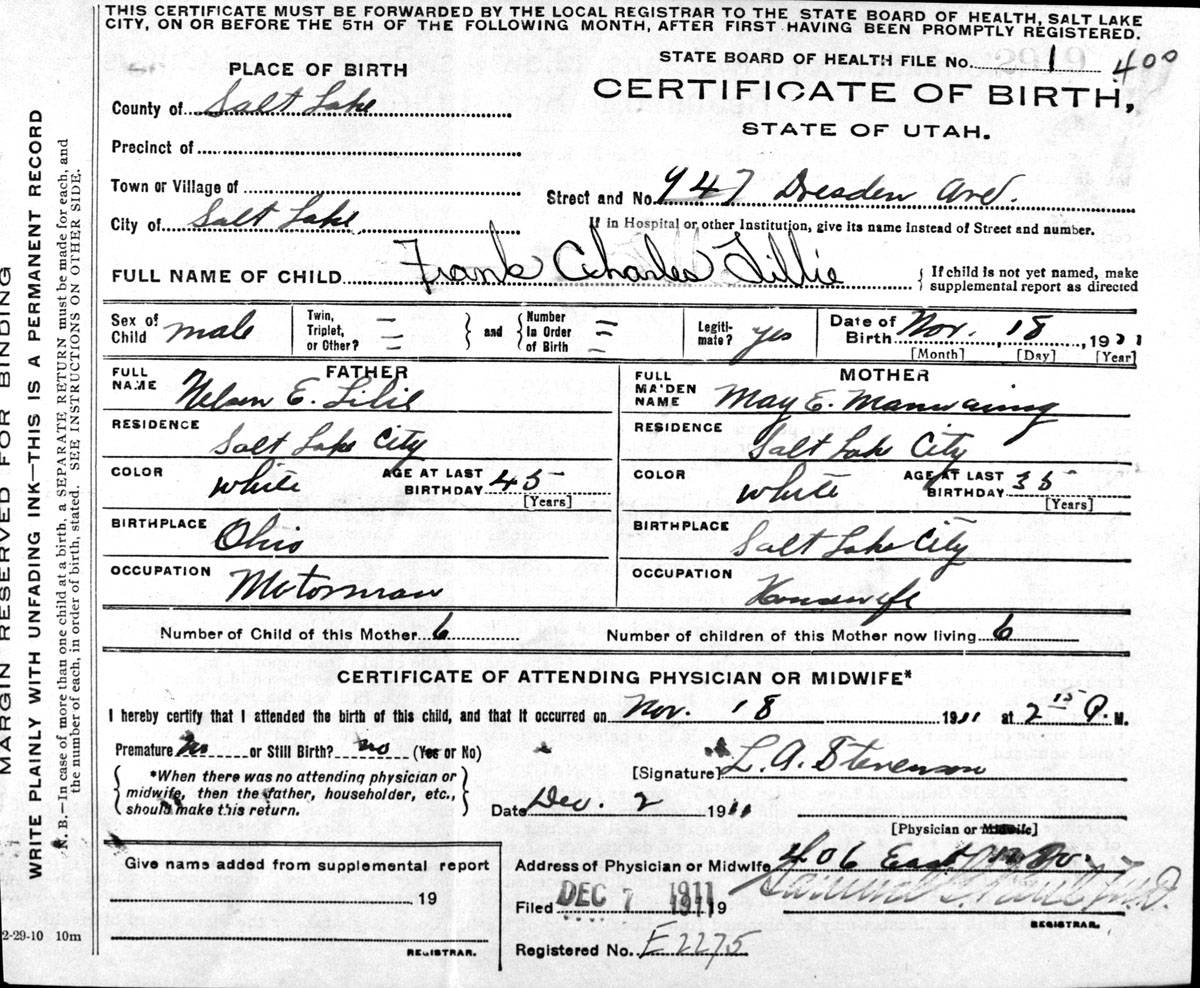 THIS CERTIFICATE MUST BE FORWARDED BY THE LOCAL REGISTRAR TO THE STATE BOARD OF HEALTH, SALT LAKE
CITY, ON OR BEFORE THE 5TH OF THE FOLLOWING MONTH, AFTER FIRST HAVING BEEN PROMPTLY REGISTERED.
MARGIN RESERVED FOR BINDING
WRITE PLAINLY WITH UNFADING INK—THIS IS A PERMANENT RECORD
N. B.—In case of more than one child at a birth, a SEPARATE RETURN must be made for each, and
the number of each, in order of birth, stated. SEE INSTRUCTIONS ON OTHER SIDE.
STATE BOARD OF HEALTH FILE No. 1 400
PLACE OF BIRTH
CERTIFICATE OF BIRTH,
STATE OF UTAH.
County of Salt Lake
Precinct of
Town or Village of
Street and No. 947 Dresden Ave.
City of Salt Lake
If in Hospital or other Institution, give its name instead of Street and number.
FULL NAME OF CHILD Frank Charles Lillie
If child is not yet named, make
supplemental report as directed
Sex of Child male
Twin, Triplet, or Other? and Number in Order of Birth
Legiti-mate? yes
Date of Birth Nov. 18, 1911
[Month] [Day] [Year]
FATHER
FULL NAME Nelson E. Lilie
RESIDENCE Salt Lake City
COLOR White AGE AT LAST BIRTHDAY 45 [Years]
BIRTHPLACE Ohio
OCCUPATION Motorman
MOTHER
FULL MAIDEN NAME May E. Manwaring
RESIDENCE Salt Lake City
COLOR White AGE AT LAST BIRTHDAY 35 [Years]
BIRTHPLACE Salt Lake City
OCCUPATION Housewife
Number of Child of this Mother 6 Number of children of this Mother now living 6
CERTIFICATE OF ATTENDING PHYSICIAN OR MIDWIFE*
I hereby certify that I attended the birth of this child, and that it occurred on Nov. 18 1911 at 2 15 P. M.
Premature No or Still Birth? no (Yes or No)
*When there was no attending physician or
midwife, then the father, householder, etc.,
should make this return.
[Signature] L. A. Stevenson
Date Dec. 2 1911
[Physician or Midwife]
Give name added from supplemental report
19
REGISTRAR.
Address of Physician or Midwife 406 East
Filed DEC 7 1911 19
REGISTRAR.
Registered No. E2275
2-29-10 10m